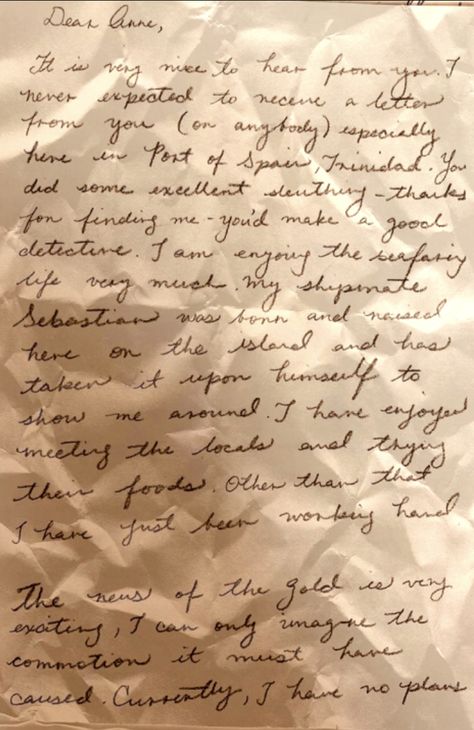 Dear Anne,
It is very nice to hear from you. I
never expected to receive a letter
from you (or anybody) especially
here in Port of Spain, Trinidad. You
did some excellent sleuthing - thanks
for finding me - you'd make a good
detective. I am enjoying the seafaring
life very much. My shipmate
Sebastian was born and raised
here on the island and has
taken it upon himself to
show me around. I have enjoyed
meeting the locals and trying
their foods. Other than that
I have just been working hard
The news of the gold is very
exciting, I can only imagine the
commotion it must have
caused. Currently, I have no plans